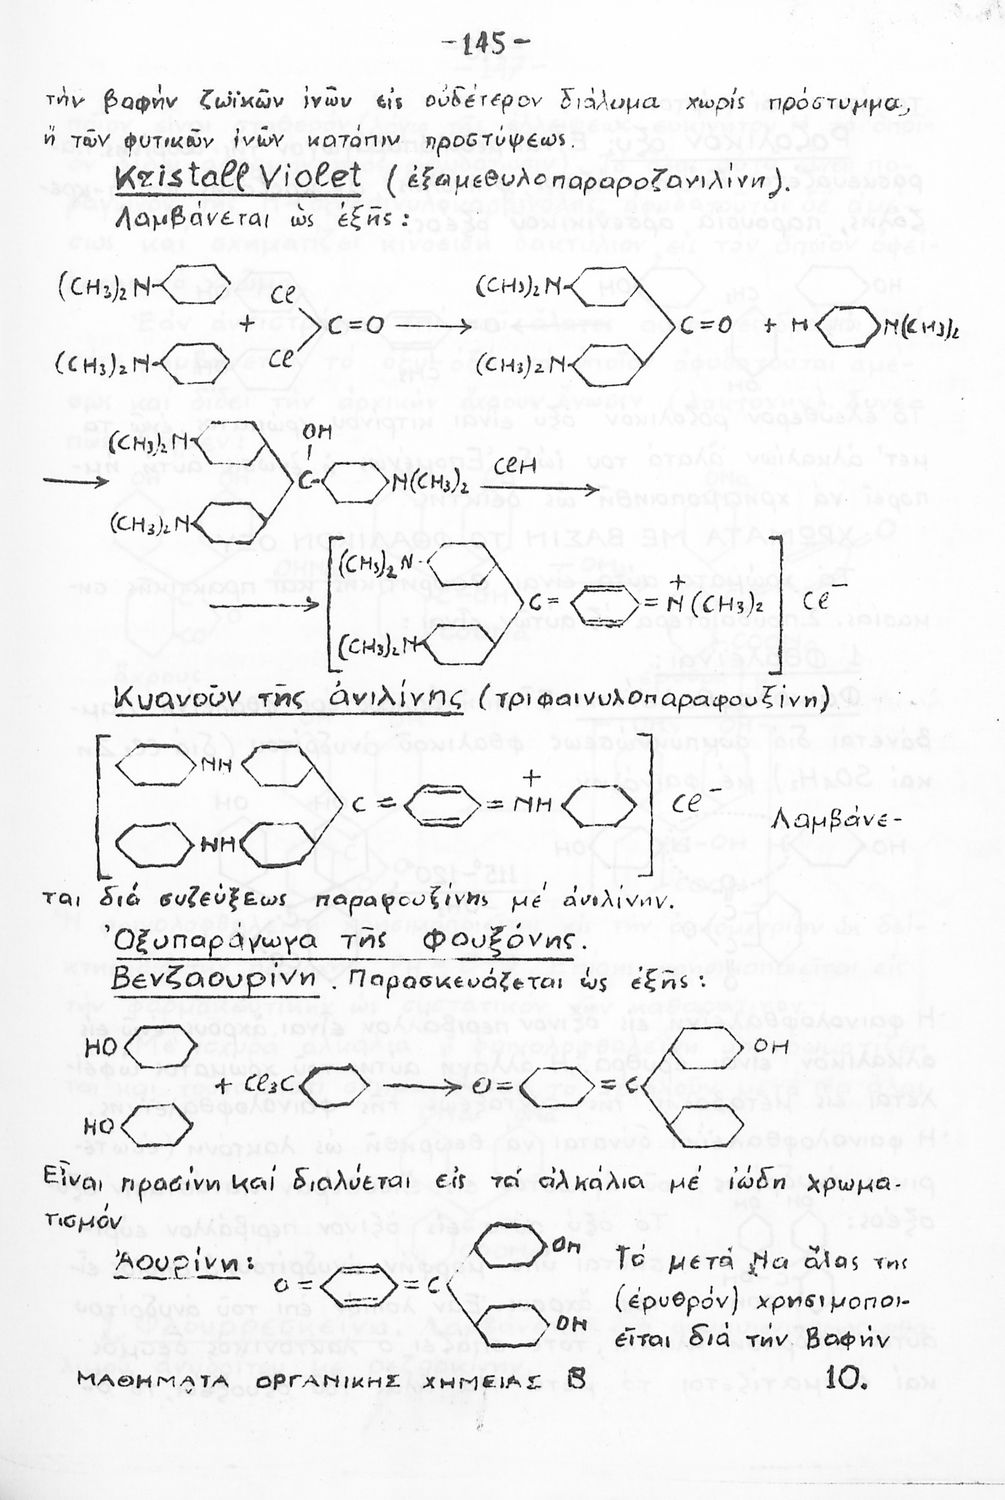 -145-
τὴν βαφὴν ζωϊκῶν ἰνῶν εἰς οὐδέτερον διάλυμα χωρίς πρόστυμμα,
ἤ τῶν φυτικῶν ἰνῶν κατόπιν προστύψεως.
Kristall Violet (ἑξαμεθυλοπαραροζανιλίνη).
Λαμβάνεται ὡς ἑξῆς:
(CH3)2N Cl (CH3)2N
+ C=O C=O + H N(CH3)2
(CH3)2N Cl (CH3)2N
(CH3)2N OH
C- N(CH3)2 ClH
(CH3)2N
(CH3)2N +
C= =N(CH3)2 Cl-
(CH3)2N
Κυανοῦν τῆς ἀνιλίνης (τριφαινυλοπαραφουξίνη)
NH +
C= =NH Cl- Λαμβάνε-
NH
ται διά συζεύξεως παραφουξίνης μέ ἀνιλίνην.
Ὀξυπαράγωγα τῆς Φουξόνης.
Βενζαουρίνη. Παρασκευάζεται ὡς ἑξῆς:
HO OH
+ Cl3C O= =C
HO
Εἶναι πρασίνη καί διαλύεται εἰς τά ἀλκάλια μέ ἰώδη χρωμα-
τισμόν
Ἀουρίνη: OH Τό μετά Na ἅλας της
O= =C (ἐρυθρόν) χρησιμοποι-
OH εῖται διά τήν βαφήν
ΜΑΘΗΜΑΤΑ ΟΡΓΑΝΙΚΗΣ ΧΗΜΕΙΑΣ Β 10.